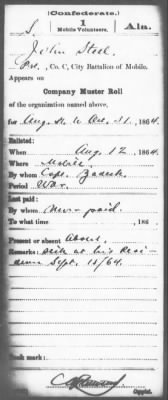 (Confederate.)
S. 1 Ala.
Mobile Volunteers.
John Steel
Pvt., Co. C, City Battalion of Mobile.
Appears on
Company Muster Roll
of the organization named above,
for Aug. 31 to Dec. 31, 1864.
Enlisted:
When Aug. 12, 1864.
Where Mobile
By whom Capt.
Period War
Last paid:
By whom Never paid.
To what time , 186 .
Present or absent Absent.
Remarks: sick at his Resi-
dence Sept. 15/64.
Book mark:
Copyist.